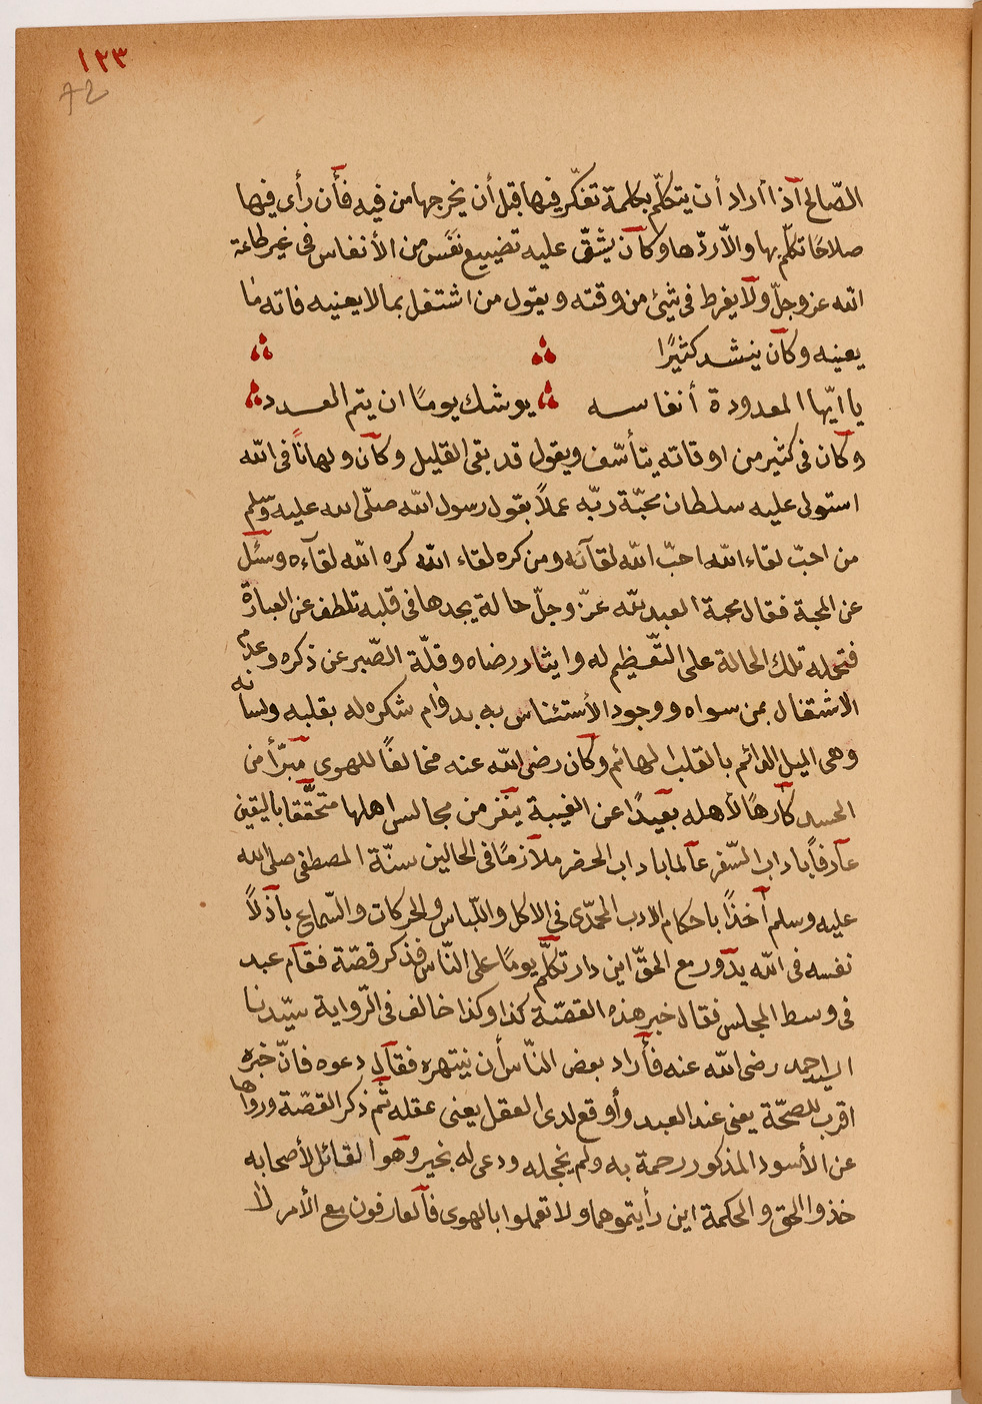 ١٢٣
72
الصّالح اذا أراد أن يتكلّم بكلمة تفكّر فيها قبل أن يخرجها من فيه فأن رأى فيها
صلاحًا تكلّم بها والاّ ردّها وكان يشقّ عليه تضييع نفَس من الأنفاس فى غير طاعة
الله عز وجلّ ولا يفرط فى شيئ من وقته ويقول من اشتغل بما لا يعنيه فاته ما
يعنيه وكان ينشد كثيرًا
يا ايّها المعدودة أنفاسه يوشك يومًا ان يتم العدد
وكان فى كثير من اوقاته يتأسّف ويقول قد بقى القليل وكان ولهانًا فى الله
استولى عليه سلطان محبّة ربّه عملاً بقول رسول الله صلّى الله عليه وسلم
من احبّ لقاء الله احبّ الله لقآئه ومن كره لقاء الله كره الله لقآءه وسئل
عن المحبة فقال محبة العبد لله عزّ وجلّ حالة يجدها فى قلبه تلطف عن العبارة
فتحمله تلك الحالة على التّعظيم له وايثار رضاه وقلّة الصّبر عن ذكره وعدم
الاشتغال بمن سواه ووجود الأستئناس به بدوام شكره له بقلبه ولسانه
وهى الميل الدائم بالقلب الهائم وكان رضى الله عنه مخالفًا للهوى مبرّأ من
الحسد كارهًا لأهله بعيدًا عن الغيبة ينفر من مجالس اهلها متحقّقا باليقين
عارفاً باداب السّفر عالما باداب الحضر ملازمًا فى الحالين سنّة المصطفى صلى الله
عليه وسلم آخذًا باحكام الادب المحمّدى فى الاكل واللّباس والحركات والسّماع باذلاً
نفسه فى الله يدور مع الحقّ اين دار تكلّم يومًا على النّاس فذكر قصّة فقام عبد
فى وسط المجلس فقال خبر هذه القصّة كذا وكذا خالف فى الرّواية سيّدنا
السيد احمد رضى الله عنه فأراد بعض النّاس أن ينتهره فقال دعوه فانّ خبره
اقرب للصحّة يعنى عند العبد وأوقع لدى العقل يعنى عقله ثم ذكر القصّة ورواها
عن الأسود المذكور رحمة به ولم يخجله ودعى له بخير وهو القائل لأصحابه
خذوا الحق والحكمة اين رأيتموهما ولا تعملوا بالهوى فالعارفون مع الأمر لا